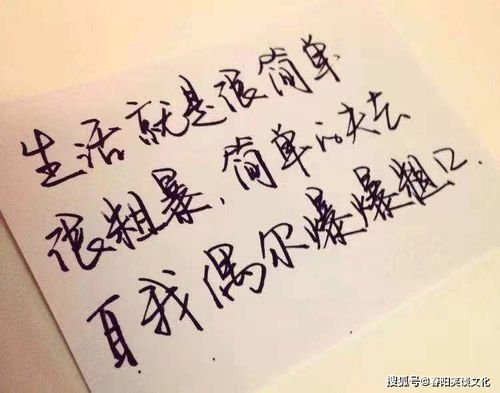 生活就是很简单
很粗暴，简单的失去
自我偶尔爆爆粗口.
搜狐号@春阳笑谈文化